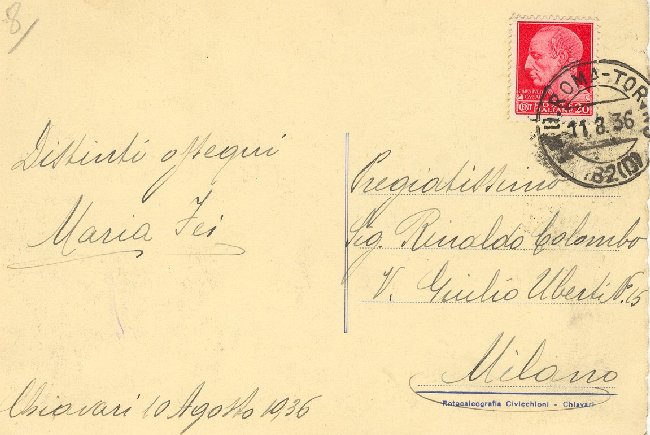 8/
Distinti ossequi
Maria Fei
Chiavari 10 Agosto 1936
CENT 20
ROMA-TOR
11.8.36
82(D)
Pregiatissimo
Sig. Rinaldo Colombo
V. Giulio Uberti N. 15
Milano
Rotocalcografia Civicchioni - Chiavari